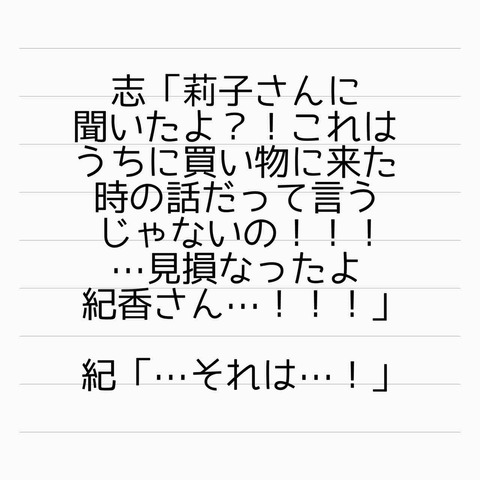 志「莉子さんに
聞いたよ？！これは
うちに買い物に来た
時の話だって言う
じゃないの！！！
…見損なったよ
紀香さん…！！！」
紀「…それは…！」